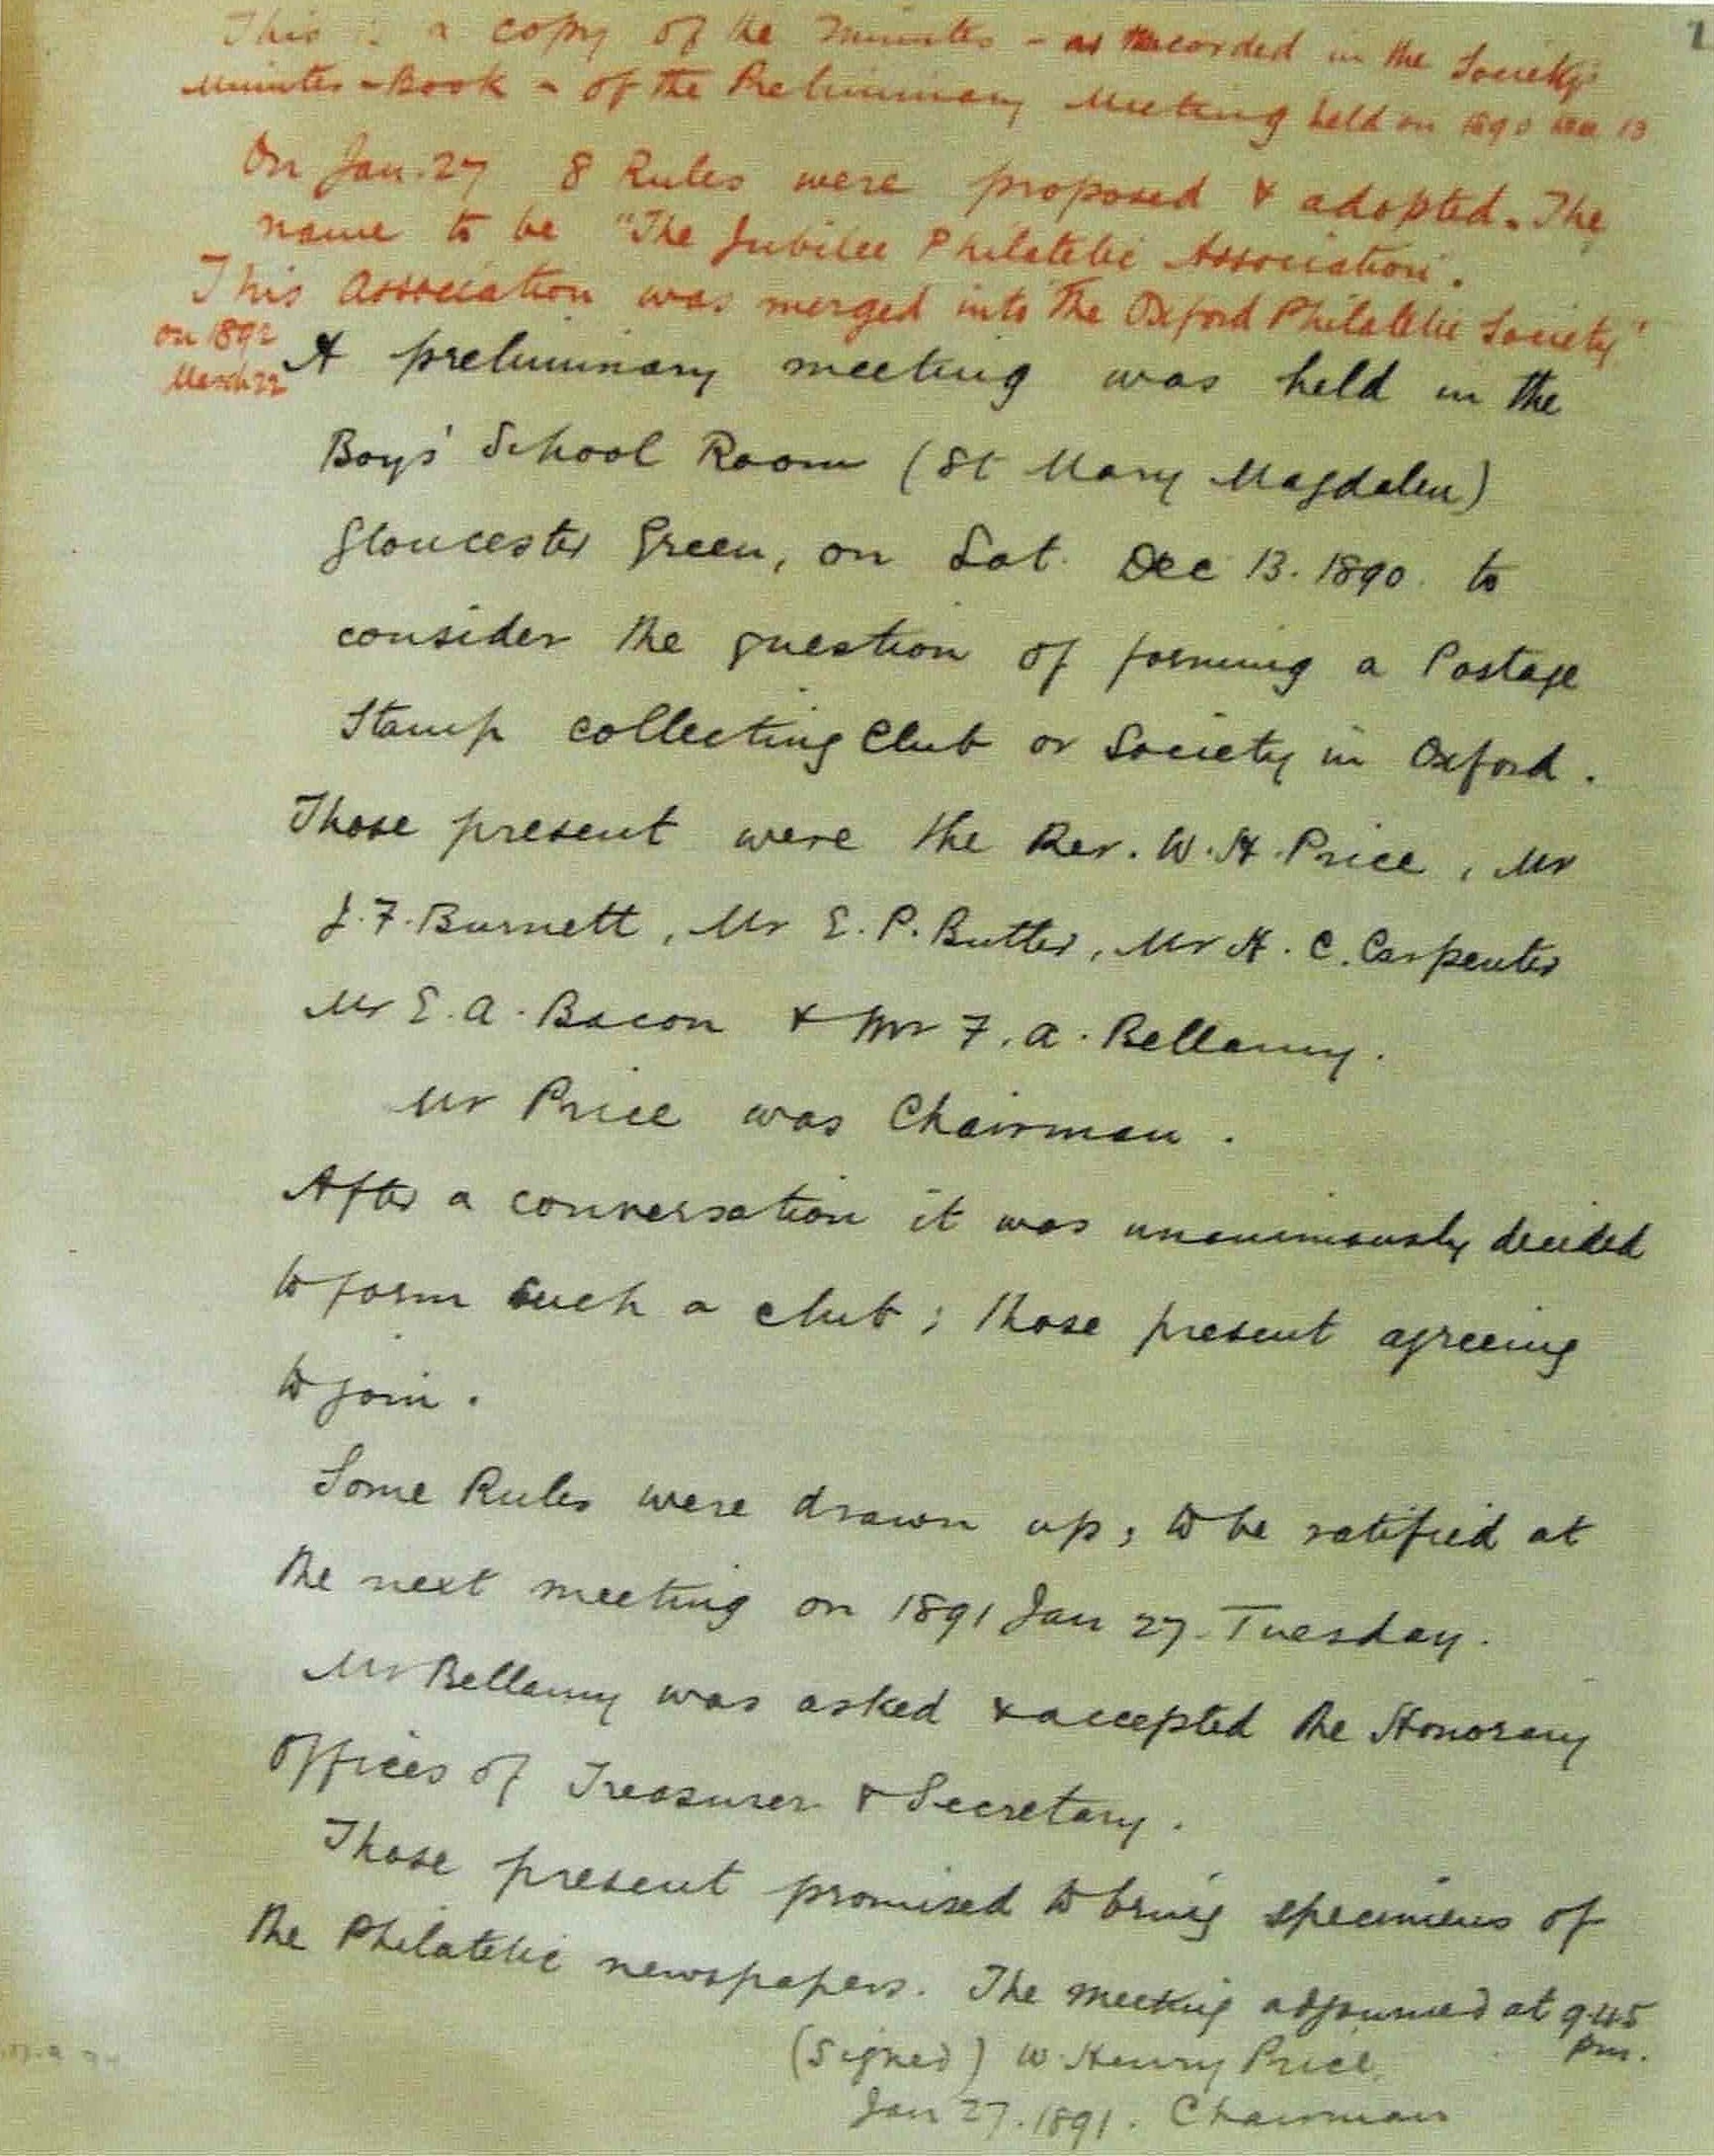 This is a copy of the Minutes - as Recorded in the Society's
Minutes-Book - of the Preliminary Meeting held on 1890 Dec 13
On Jan. 27 8 Rules were proposed & adopted. The
name to be "The Jubilee Philatelic Association".
This Association was merged into "The Oxford Philatelic Society"
on 1892
March 22
A preliminary meeting was held in the
Boys' School Room (St Mary Magdalen)
Gloucester Green, on Sat. Dec 13. 1890. to
consider the question of forming a Postage
Stamp collecting Club or Society in Oxford.
Those present were the Rev. W. H. Price, Mr
J. F. Burnett, Mr E. P. Butler, Mr H. C. Carpenter
Mr E. A. Bacon & Mr F. A. Bellamy.
Mr Price was Chairman.
After a conversation it was unanimously decided
to form such a club; those present agreeing
to join.
Some Rules were drawn up, to be ratified at
the next meeting on 1891 Jan 27. Tuesday.
Mr Bellamy was asked & accepted the Honorary
Offices of Treasurer & Secretary.
Those present promised to bring specimens of
the Philatelic newspapers. The meeting adjourned at 9.45
pm.
(Signed) W. Henry Price,
Jan 27. 1891. Chairman